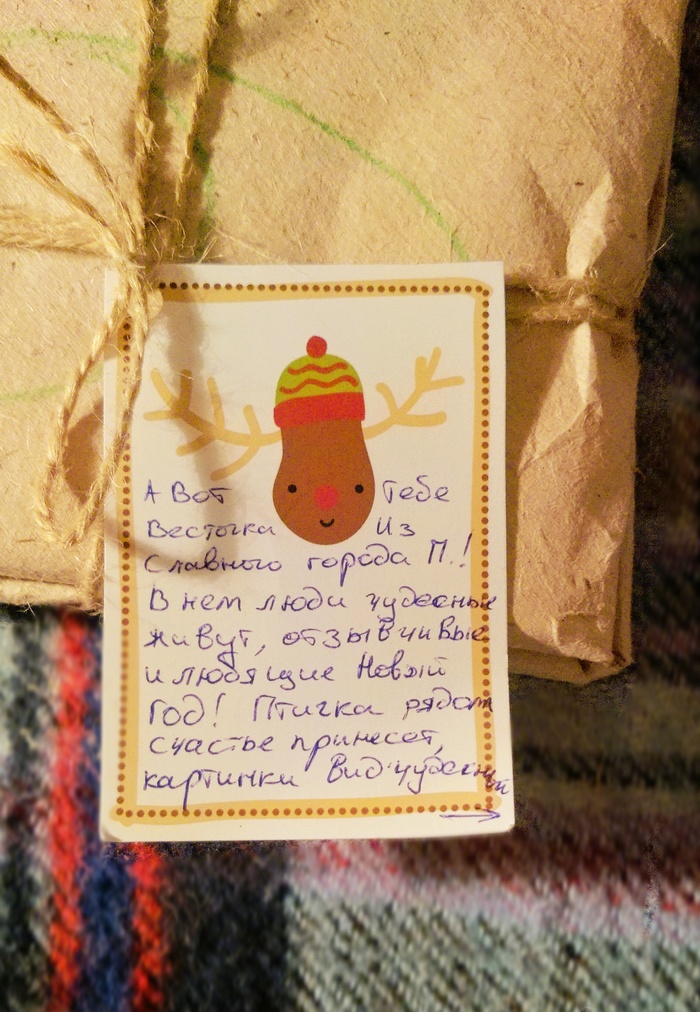 А Вот Тебе
Весточка Из
Славного города П.!
В нем люди чудесные
живут, отзывчивые
и любящие Новый
Год! Птичка рядом
счастье принесет,
картинки Вид чудесный